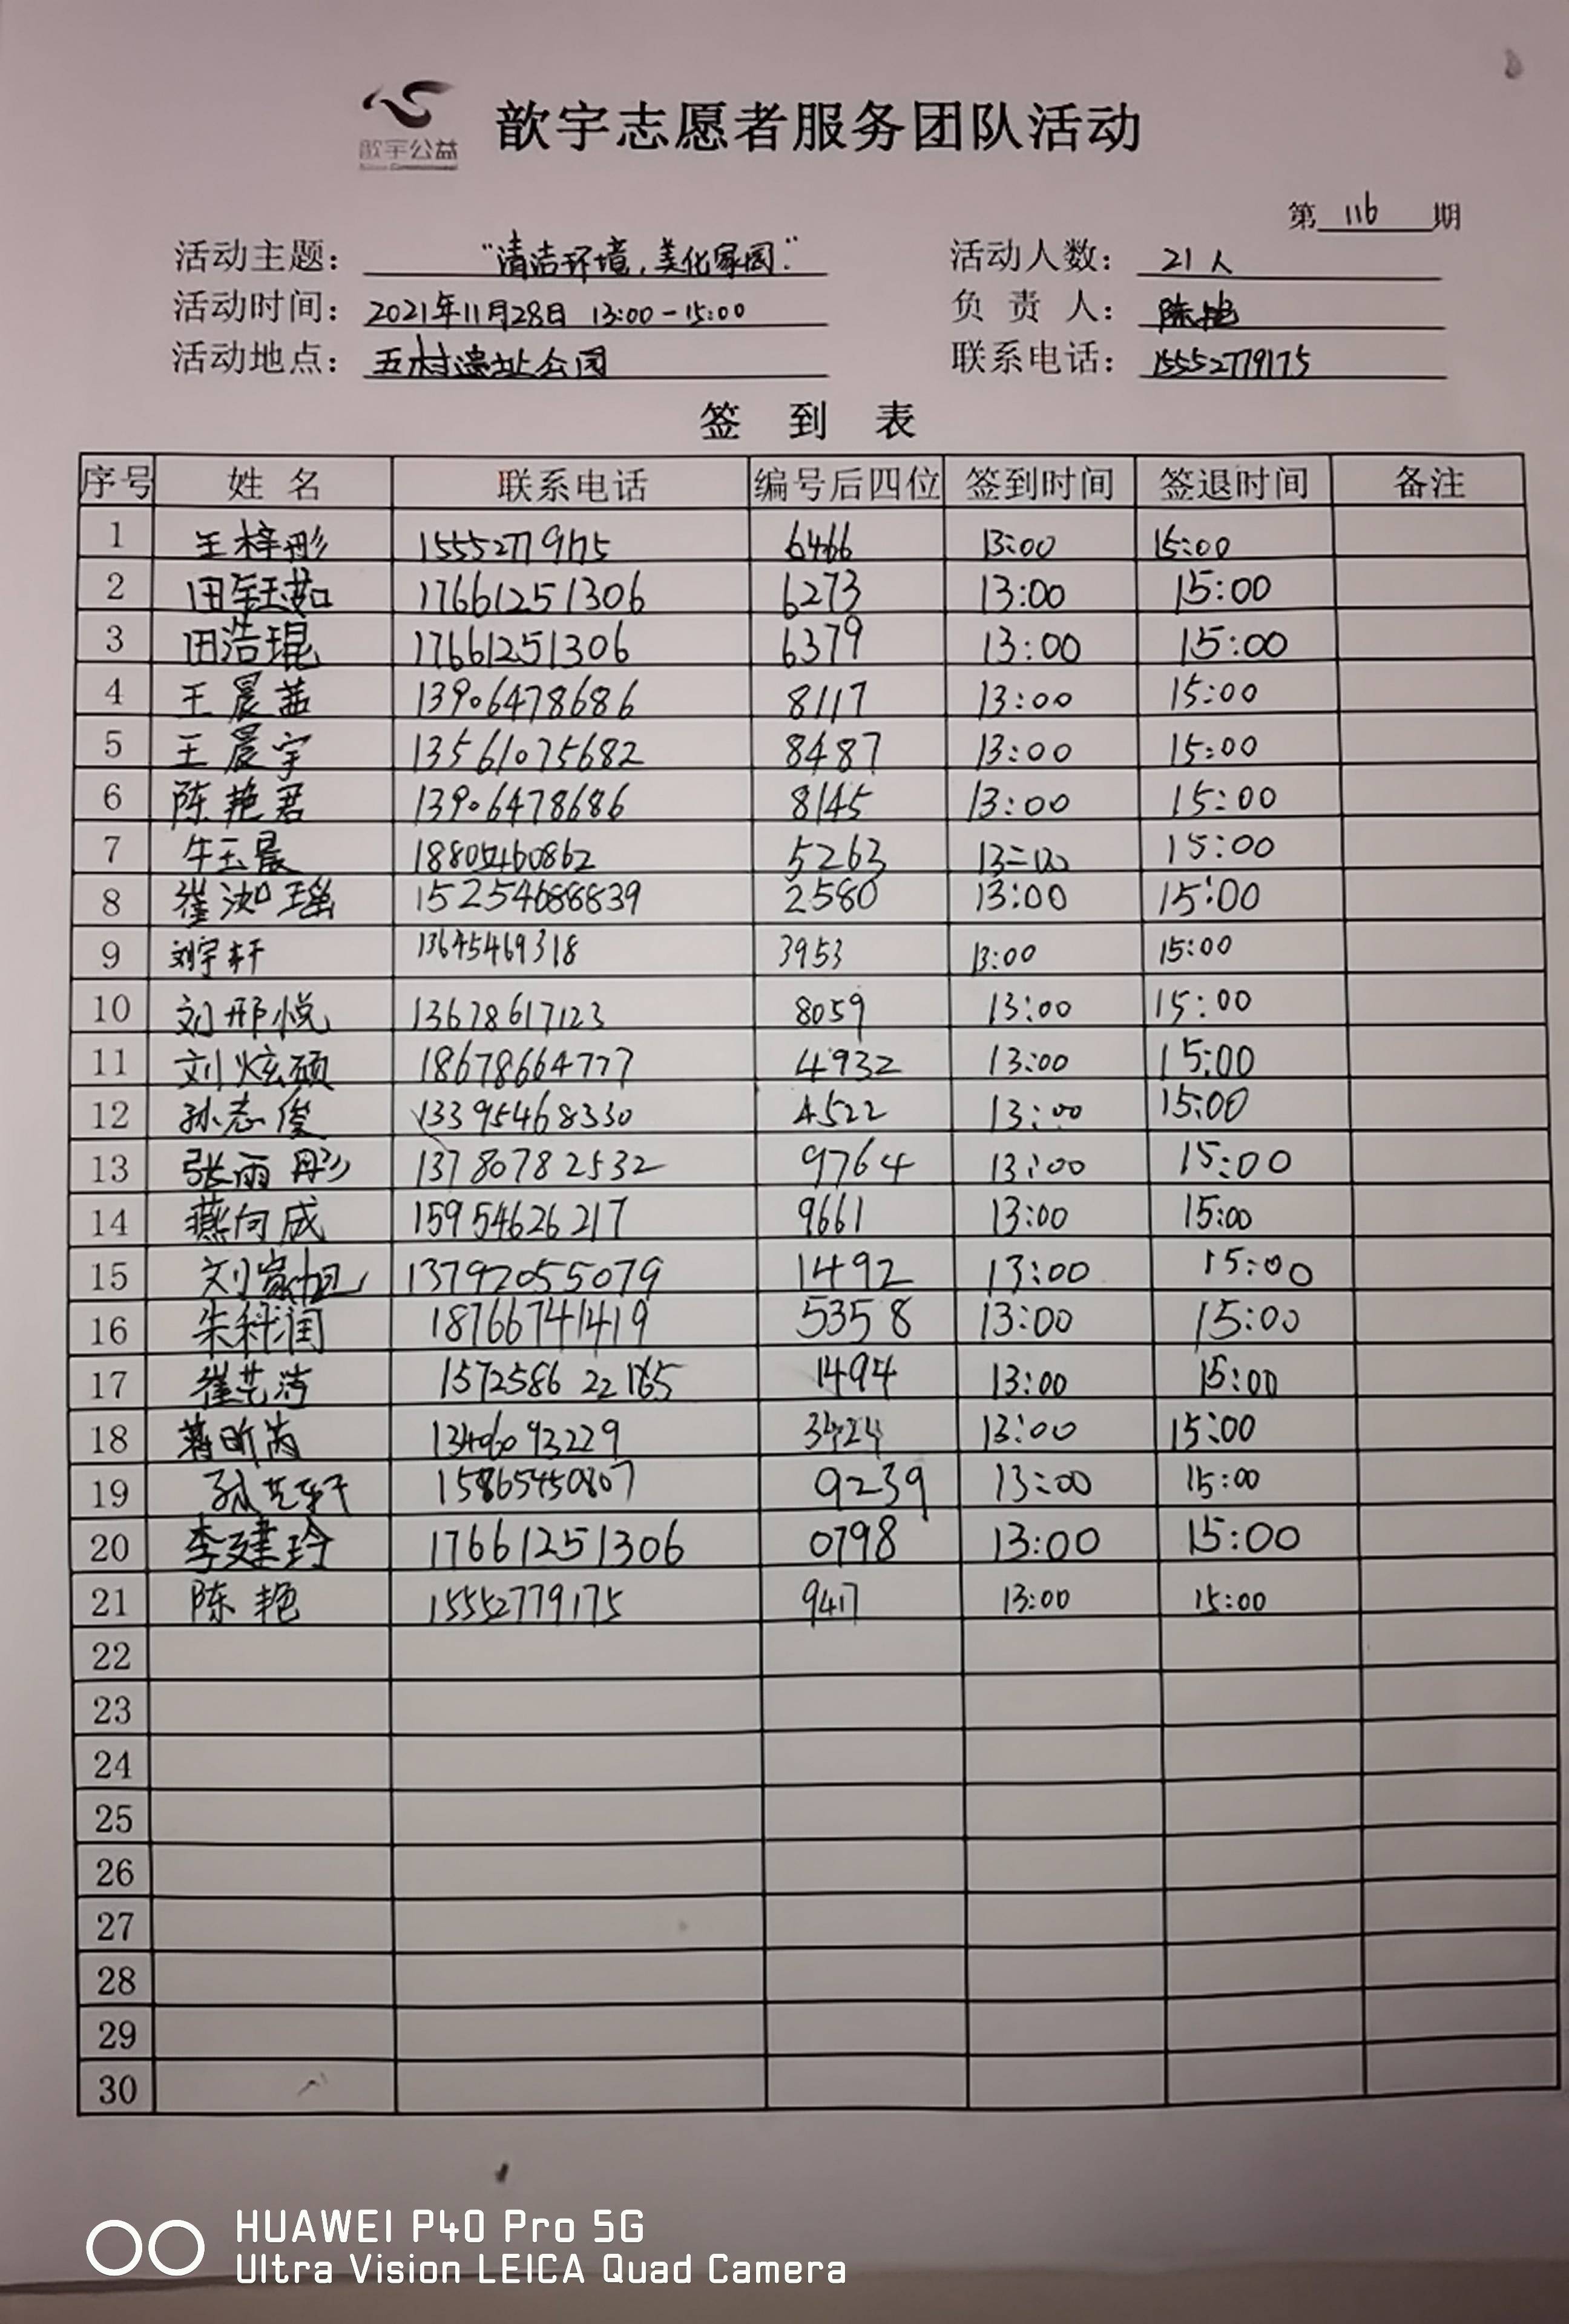 歆宇公益
歆宇志愿者服务团队活动
第 116 期
活动主题： "清洁环境，美化家园." 活动人数： 21人
活动时间： 2021年11月28日 13:00-15:00 负 责 人： 陈艳
活动地点： 五村遗址公园 联系电话： 15552779175
签 到 表
序号 姓 名 联系电话 编号后四位 签到时间 签退时间 备注
1 王梓彤 15552779175 6466 13:00 15:00
2 田钰茹 17661251306 6273 13:00 15:00
3 田浩琨 17661251306 6379 13:00 15:00
4 王晨 13906478686 8117 13:00 15:00
5 王晨宇 13561075682 8487 13:00 15:00
6 陈艳君 13906478686 8145 13:00 15:00
7 牛玉晨 5263 13:00 15:00
8 崔 瑶 15254688839 2580 13:00 15:00
9 刘宇轩 13645469318 3953 13:00 15:00
10 刘邢悦 13678617123 8059 13:00 15:00
11 刘炫硕 18678664777 4932 13:00 15:00
12 孙志俊 13395468330 4522 13:00 15:00
13 张雨彤 13780782532 9764 13:00 15:00
14 燕向成 15954626217 9661 13:00 15:00
15 刘 13792055079 1492 13:00 15:00
16 朱科润 18766741419 5358 13:00 15:00
17 崔艺 1494 13:00 15:00
18 蒋昕芮 3424 13:00 15:00
19 孙艺轩 15865450807 9239 13:00 15:00
20 李建玲 17661251306 0798 13:00 15:00
21 陈艳 15552779175 9417 13:00 15:00
22
23
24
25
26
27
28
29
30
HUAWEI P40 Pro 5G
Ultra Vision LEICA Quad Camera